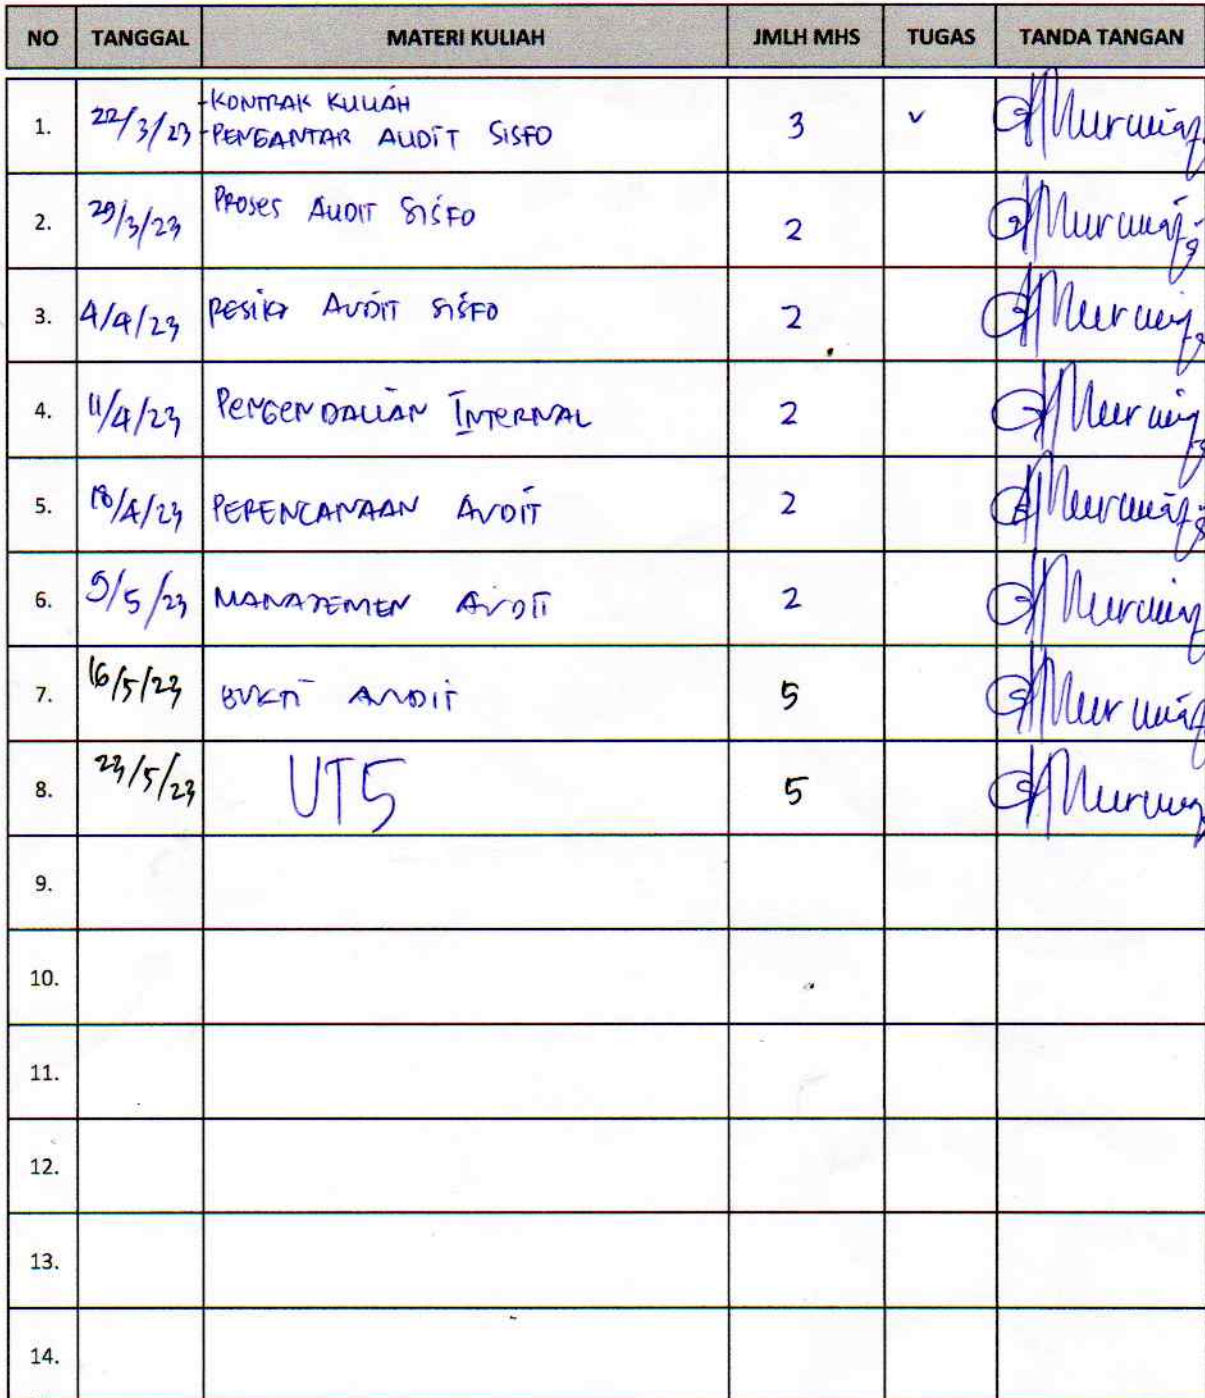 NO TANGGAL MATERI KULIAH JMLH MHS TUGAS TANDA TANGAN
1. 22/3/23 -KONTRAK KULIAH
-PENGANTAR AUDIT SISFO 3 v
2. 29/3/23 PROSES AUDIT SISFO 2
3. 4/4/23 RESIKO AUDIT SISFO 2
4. 11/4/23 PENGENDALIAN INTERNAL 2
5. 18/4/23 PERENCANAAN AUDIT 2
6. 9/5/23 MANAJEMEN AUDIT 2
7. 16/5/23 BUKTI AUDIT 5
8. 23/5/23 UTS 5
9.
10.
11.
12.
13.
14.